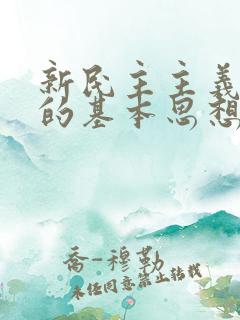 新民主主义
的基本思想
乔-穆勒
未经同意禁止转载